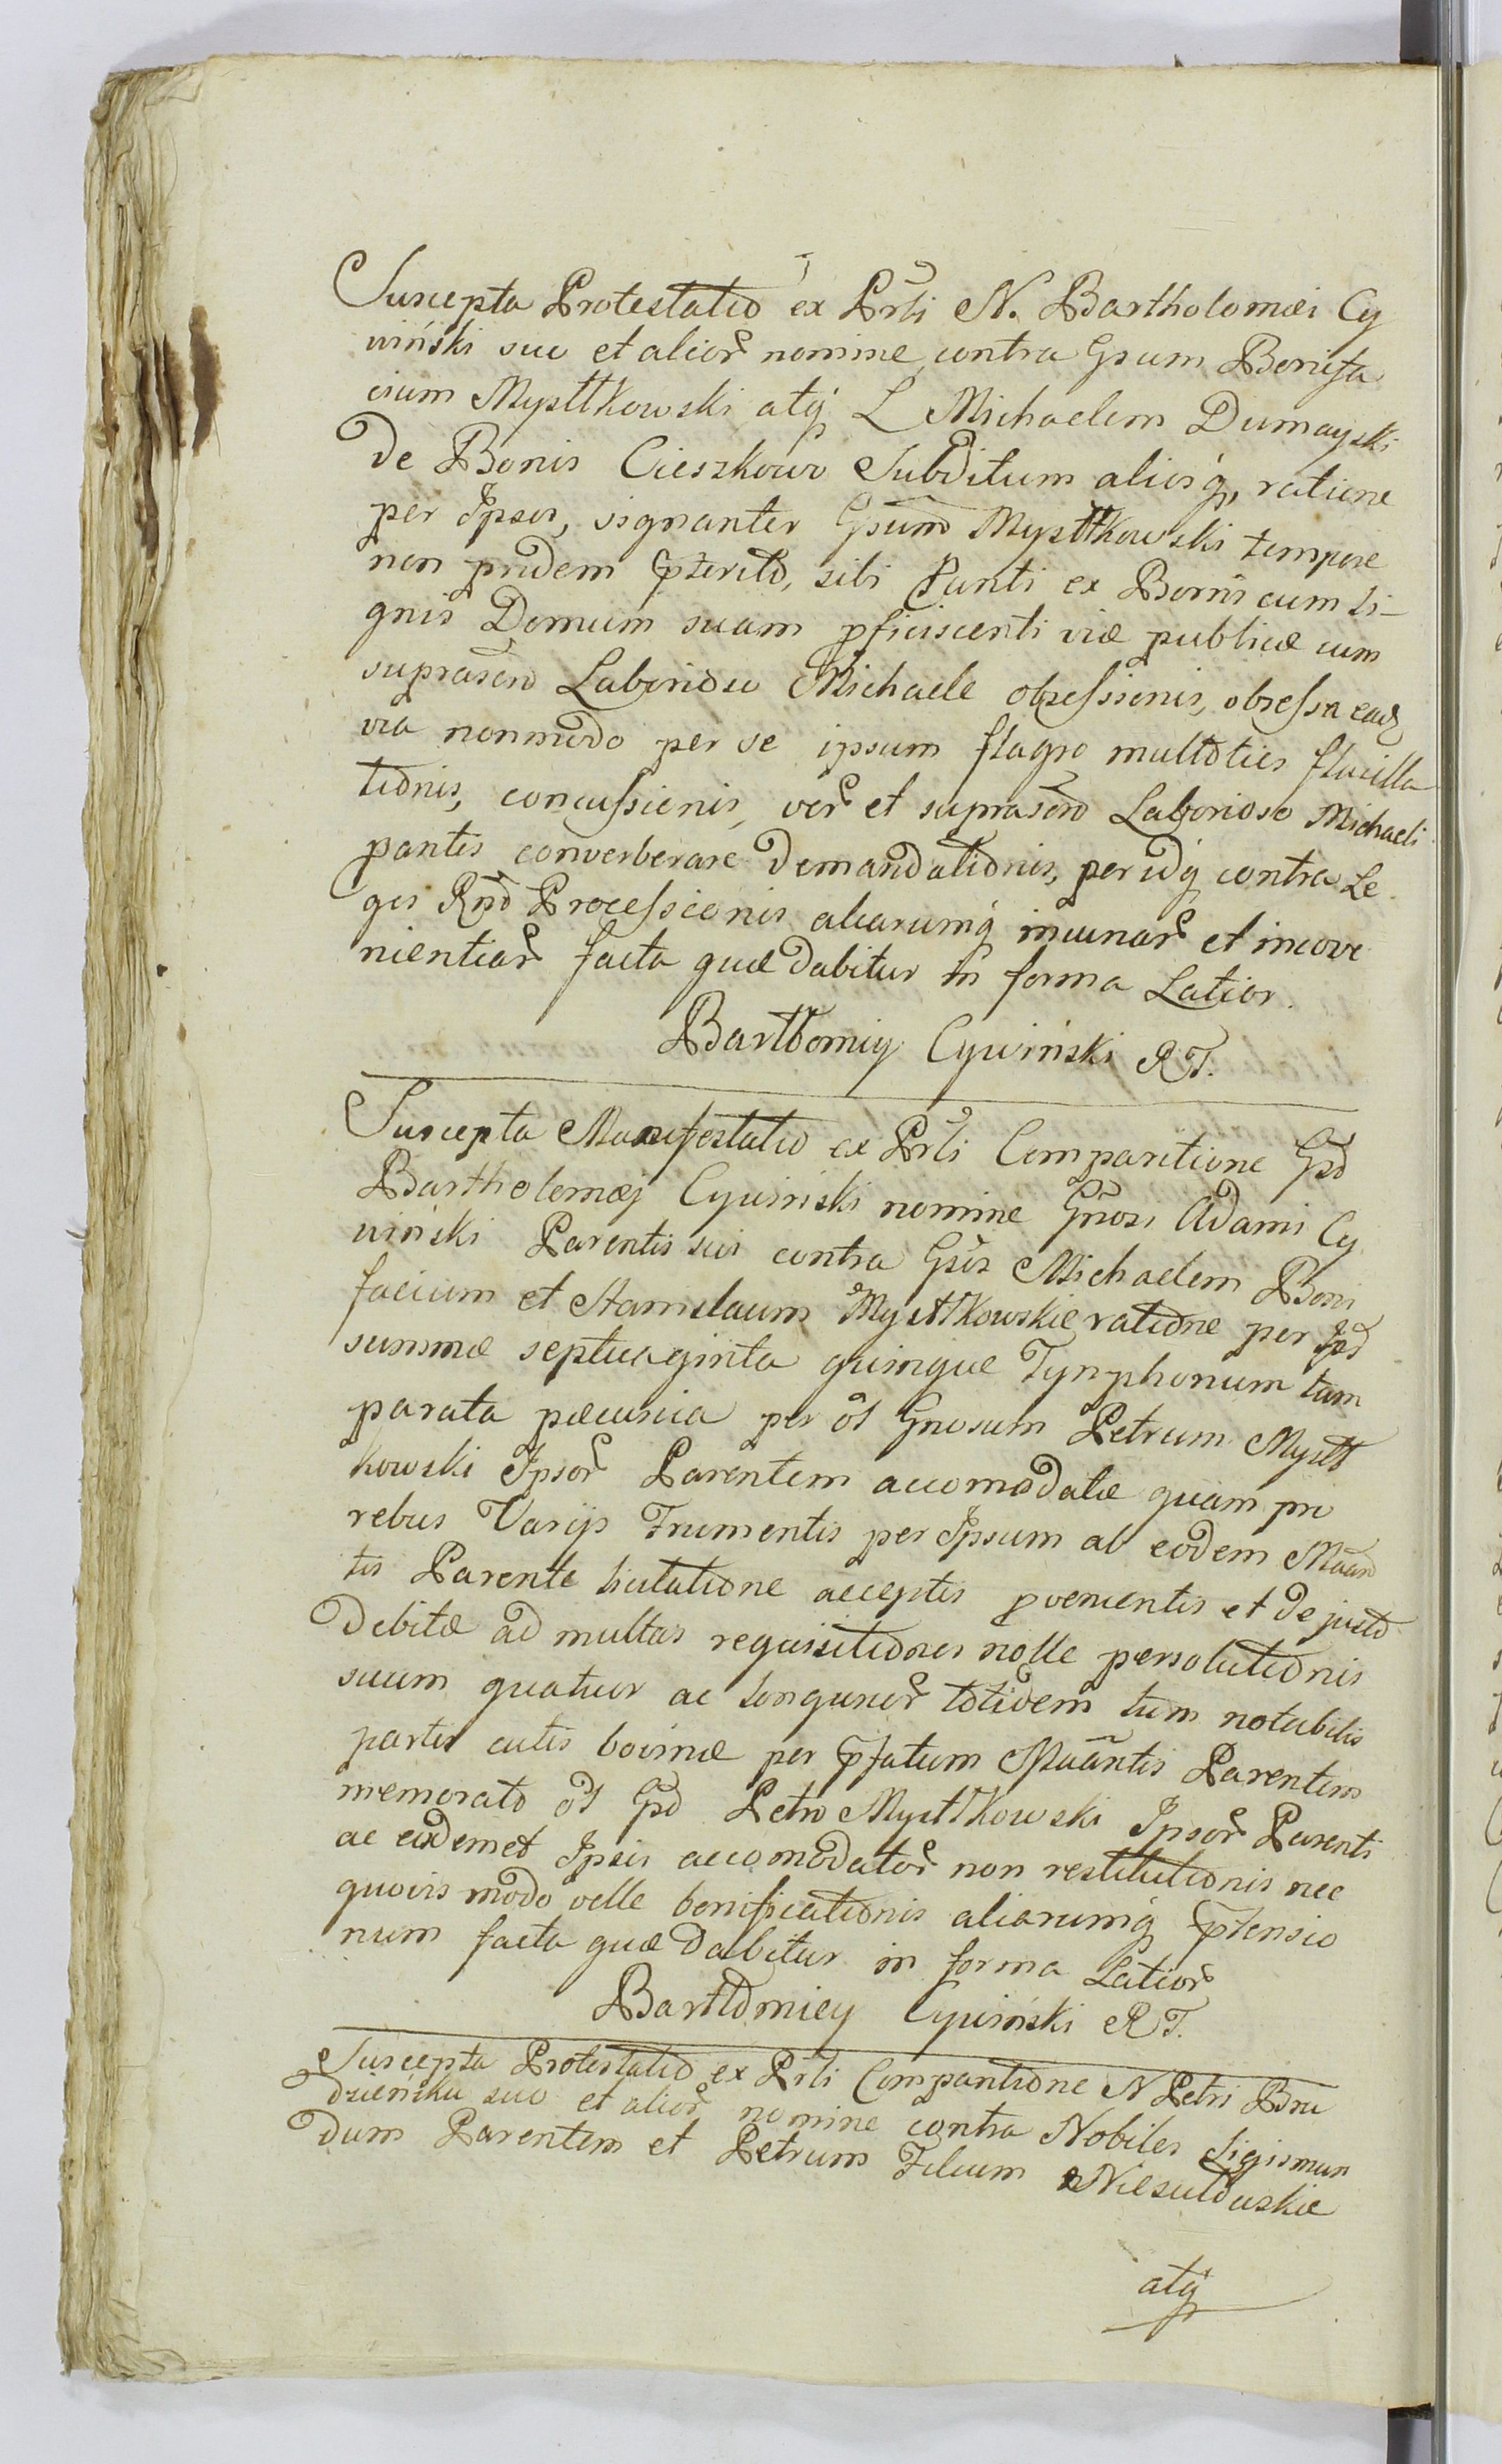 Suscepta Protestatio ex Prsti N. Bartholomæi Cy
wiński suo et alior nomine contra Gsum Bonifa
cium MysttKowski atq L Michaelem Dumayski
de Bonis Cieszkowo Subditum aliosq, ratione
per Ipsos, signanter Gsum MysttKowski tempore
non pridem Pterito, sibi Ptanti ex Bonis cum li-
gnis Domum suam pficiscenti viæ publicæ cum
suprascrto Laborioso Michaele obsessionis, obsessa eadq
via nonmodo per se ipsum flagro multoties flacilla
tionis, concussionis, ver et suprascrto Laborioso Michaeli
pantes converberare demandationis, per idq contra Le
ges Rni Processionis aliarumq iniuriar et inconve
nientiar facta quæ dabitur in forma Latior.
Bartłomiy Cywiński RT.
Suscepta Manifestatio ex Prsti Comparitione Gsd
Bartholomæj Cywiński nomine Gnosi Adami Cy
wiński Parentis sui contra Gsos Michaelem Boni
facium et Stanislaum MysttKowskie ratione per Ipsos
summæ septuaginta quinque Tynphonum tam
parata pæcunia per ol Gnosum Petrum Mystt
kowski Ipsor Parentem accomodatæ quam pro
rebus Varijs Frumentis per Ipsum ab eodem Maan
tis Parente licitatione acceptis pvenientis et de justo
debitæ ad multas requisitiones nolle persolutionis
suum quatuor ac longurior totidem tum notabilis
partis cutis bovinæ per Pfatum Maantis Parentem
memorato ol Gsd Petro MysttKowski Ipsor Parenti
ac eisdemet Ipsis accomodator non restitutionis nec
quovis modo velle bonificationis aliarumq Ptensio
num facta quæ dabitur in forma Latior
Bartłomiey Cywiński RT.
Suscepta Protestatio ex Prsti Comparitione N Petri Bru
dzieńska suo et alior nomine contra Nobiles Sigismun
dum Parentem et Petrum Filium Niesułduskie
atq